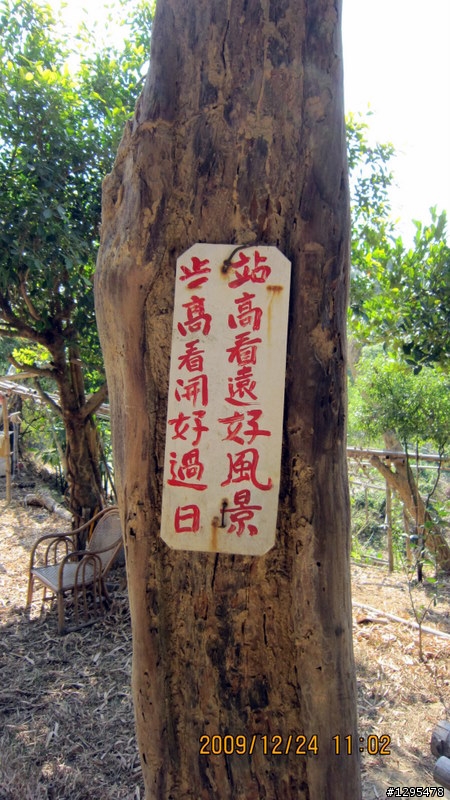 站高看遠好風景
高看開好過日
2009/12/24 11:02
#1295478